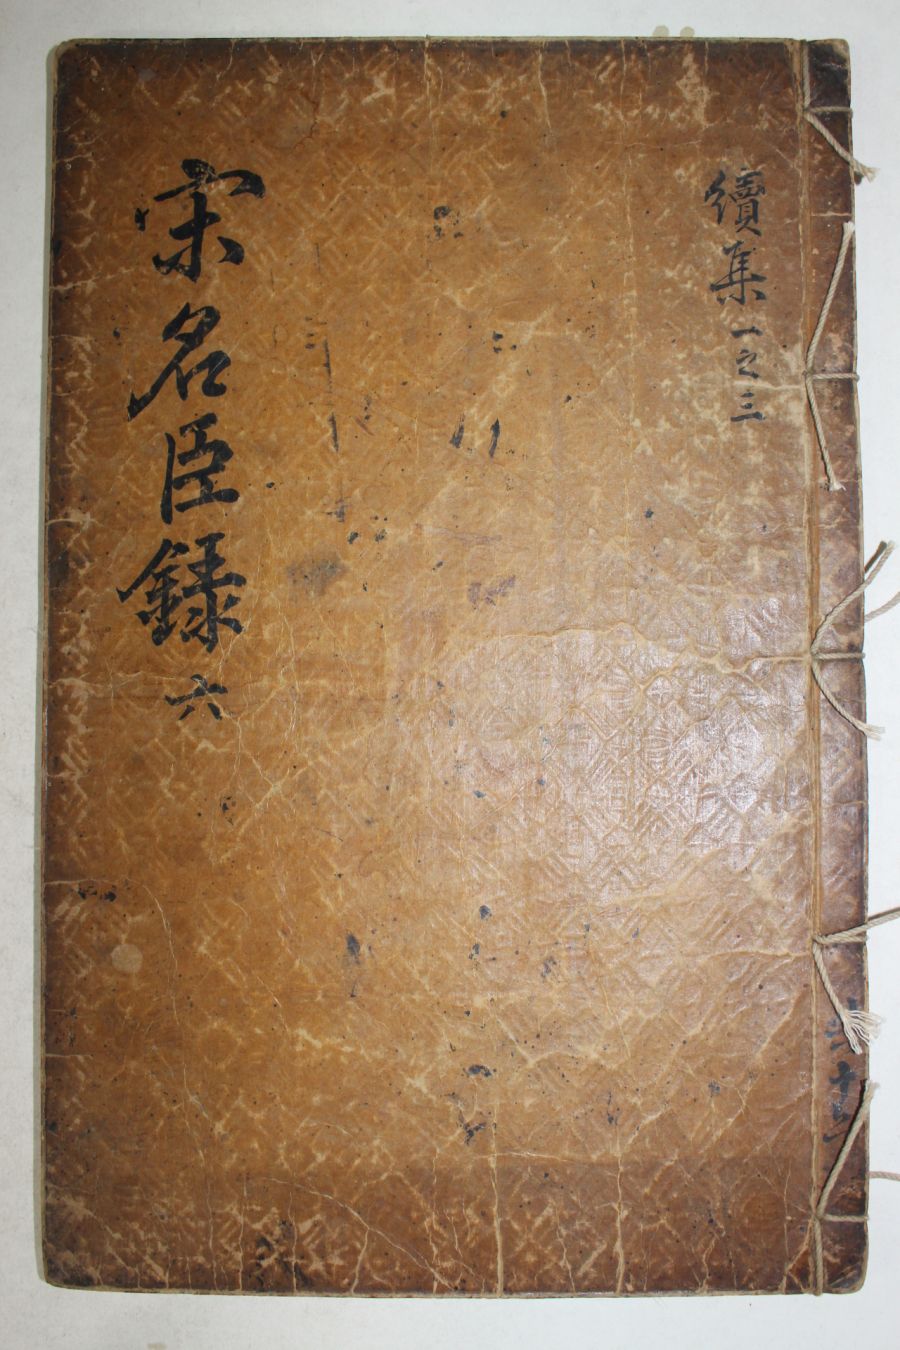 續集 一之三
宋名臣録 六